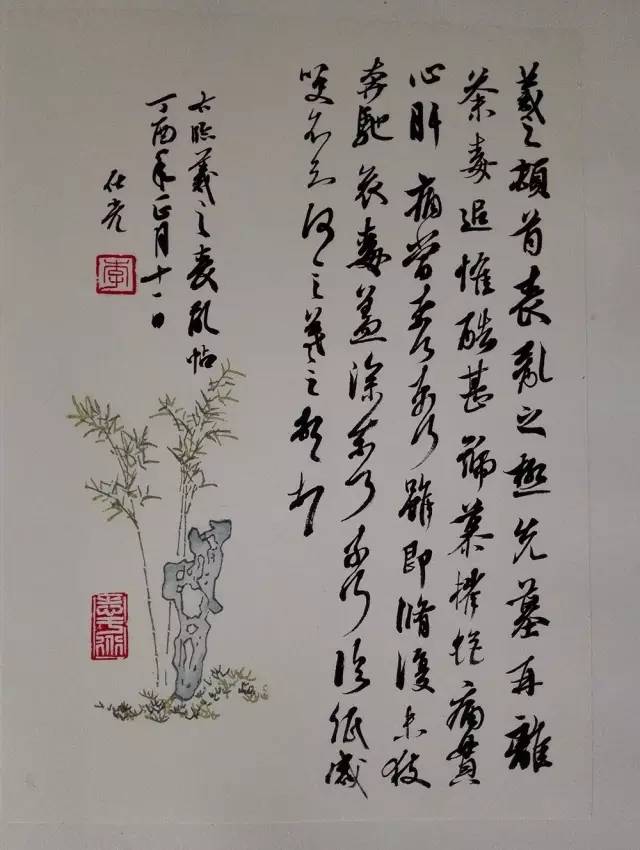 羲之頓首喪亂之極先墓再離
荼毒追惟酷甚號慕摧絕痛貫
心肝痛當奈何奈何雖即脩復未獲
奔馳哀毒益深奈何奈何臨紙感
哽不知何言羲之頓首
右臨羲之喪亂帖
丁酉年正月十一日
李